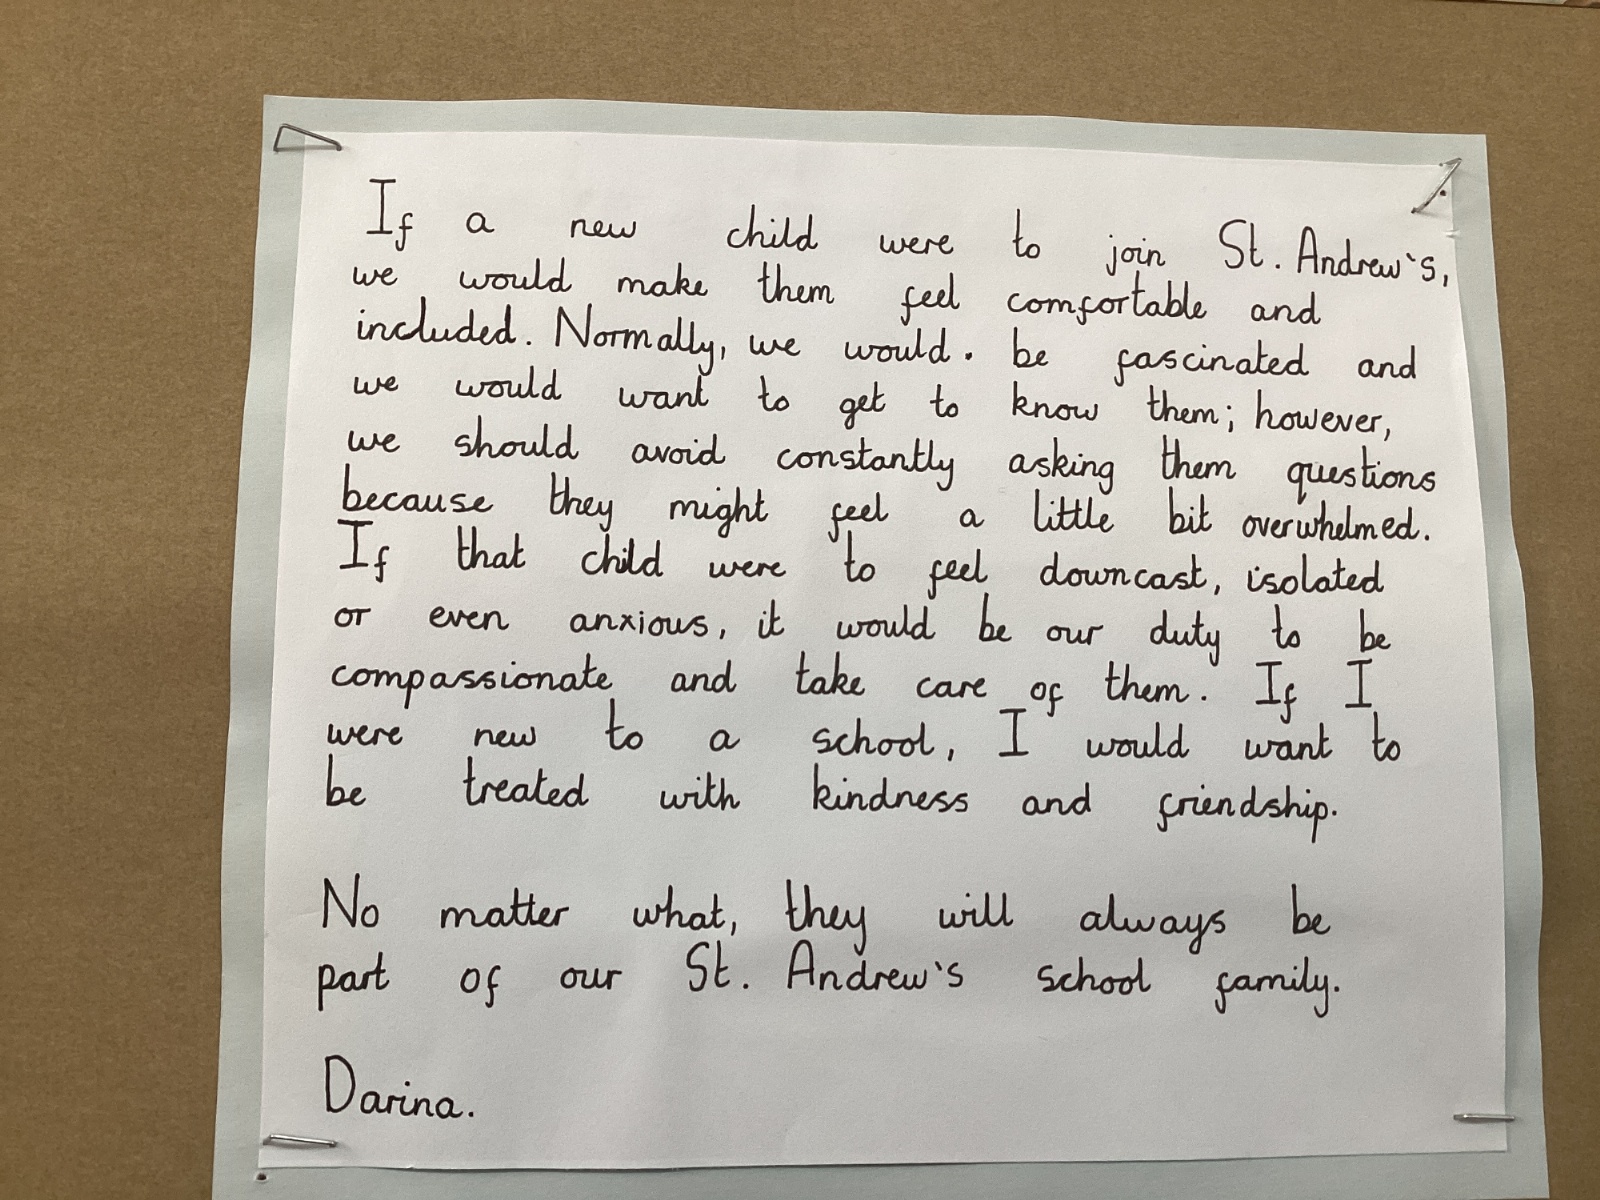 If a new child were to join St. Andrew's,
we would make them feel comfortable and
included. Normally, we would. be fascinated and
we would want to get to know them; however,
we should avoid constantly asking them questions
because they might feel a little bit overwhelmed.
If that child were to feel downcast, isolated
or even anxious, it would be our duty to be
compassionate and take care of them. If I
were new to a school, I would want to
be treated with kindness and friendship.
No matter what, they will always be
part of our St. Andrew's school family.
Darina.